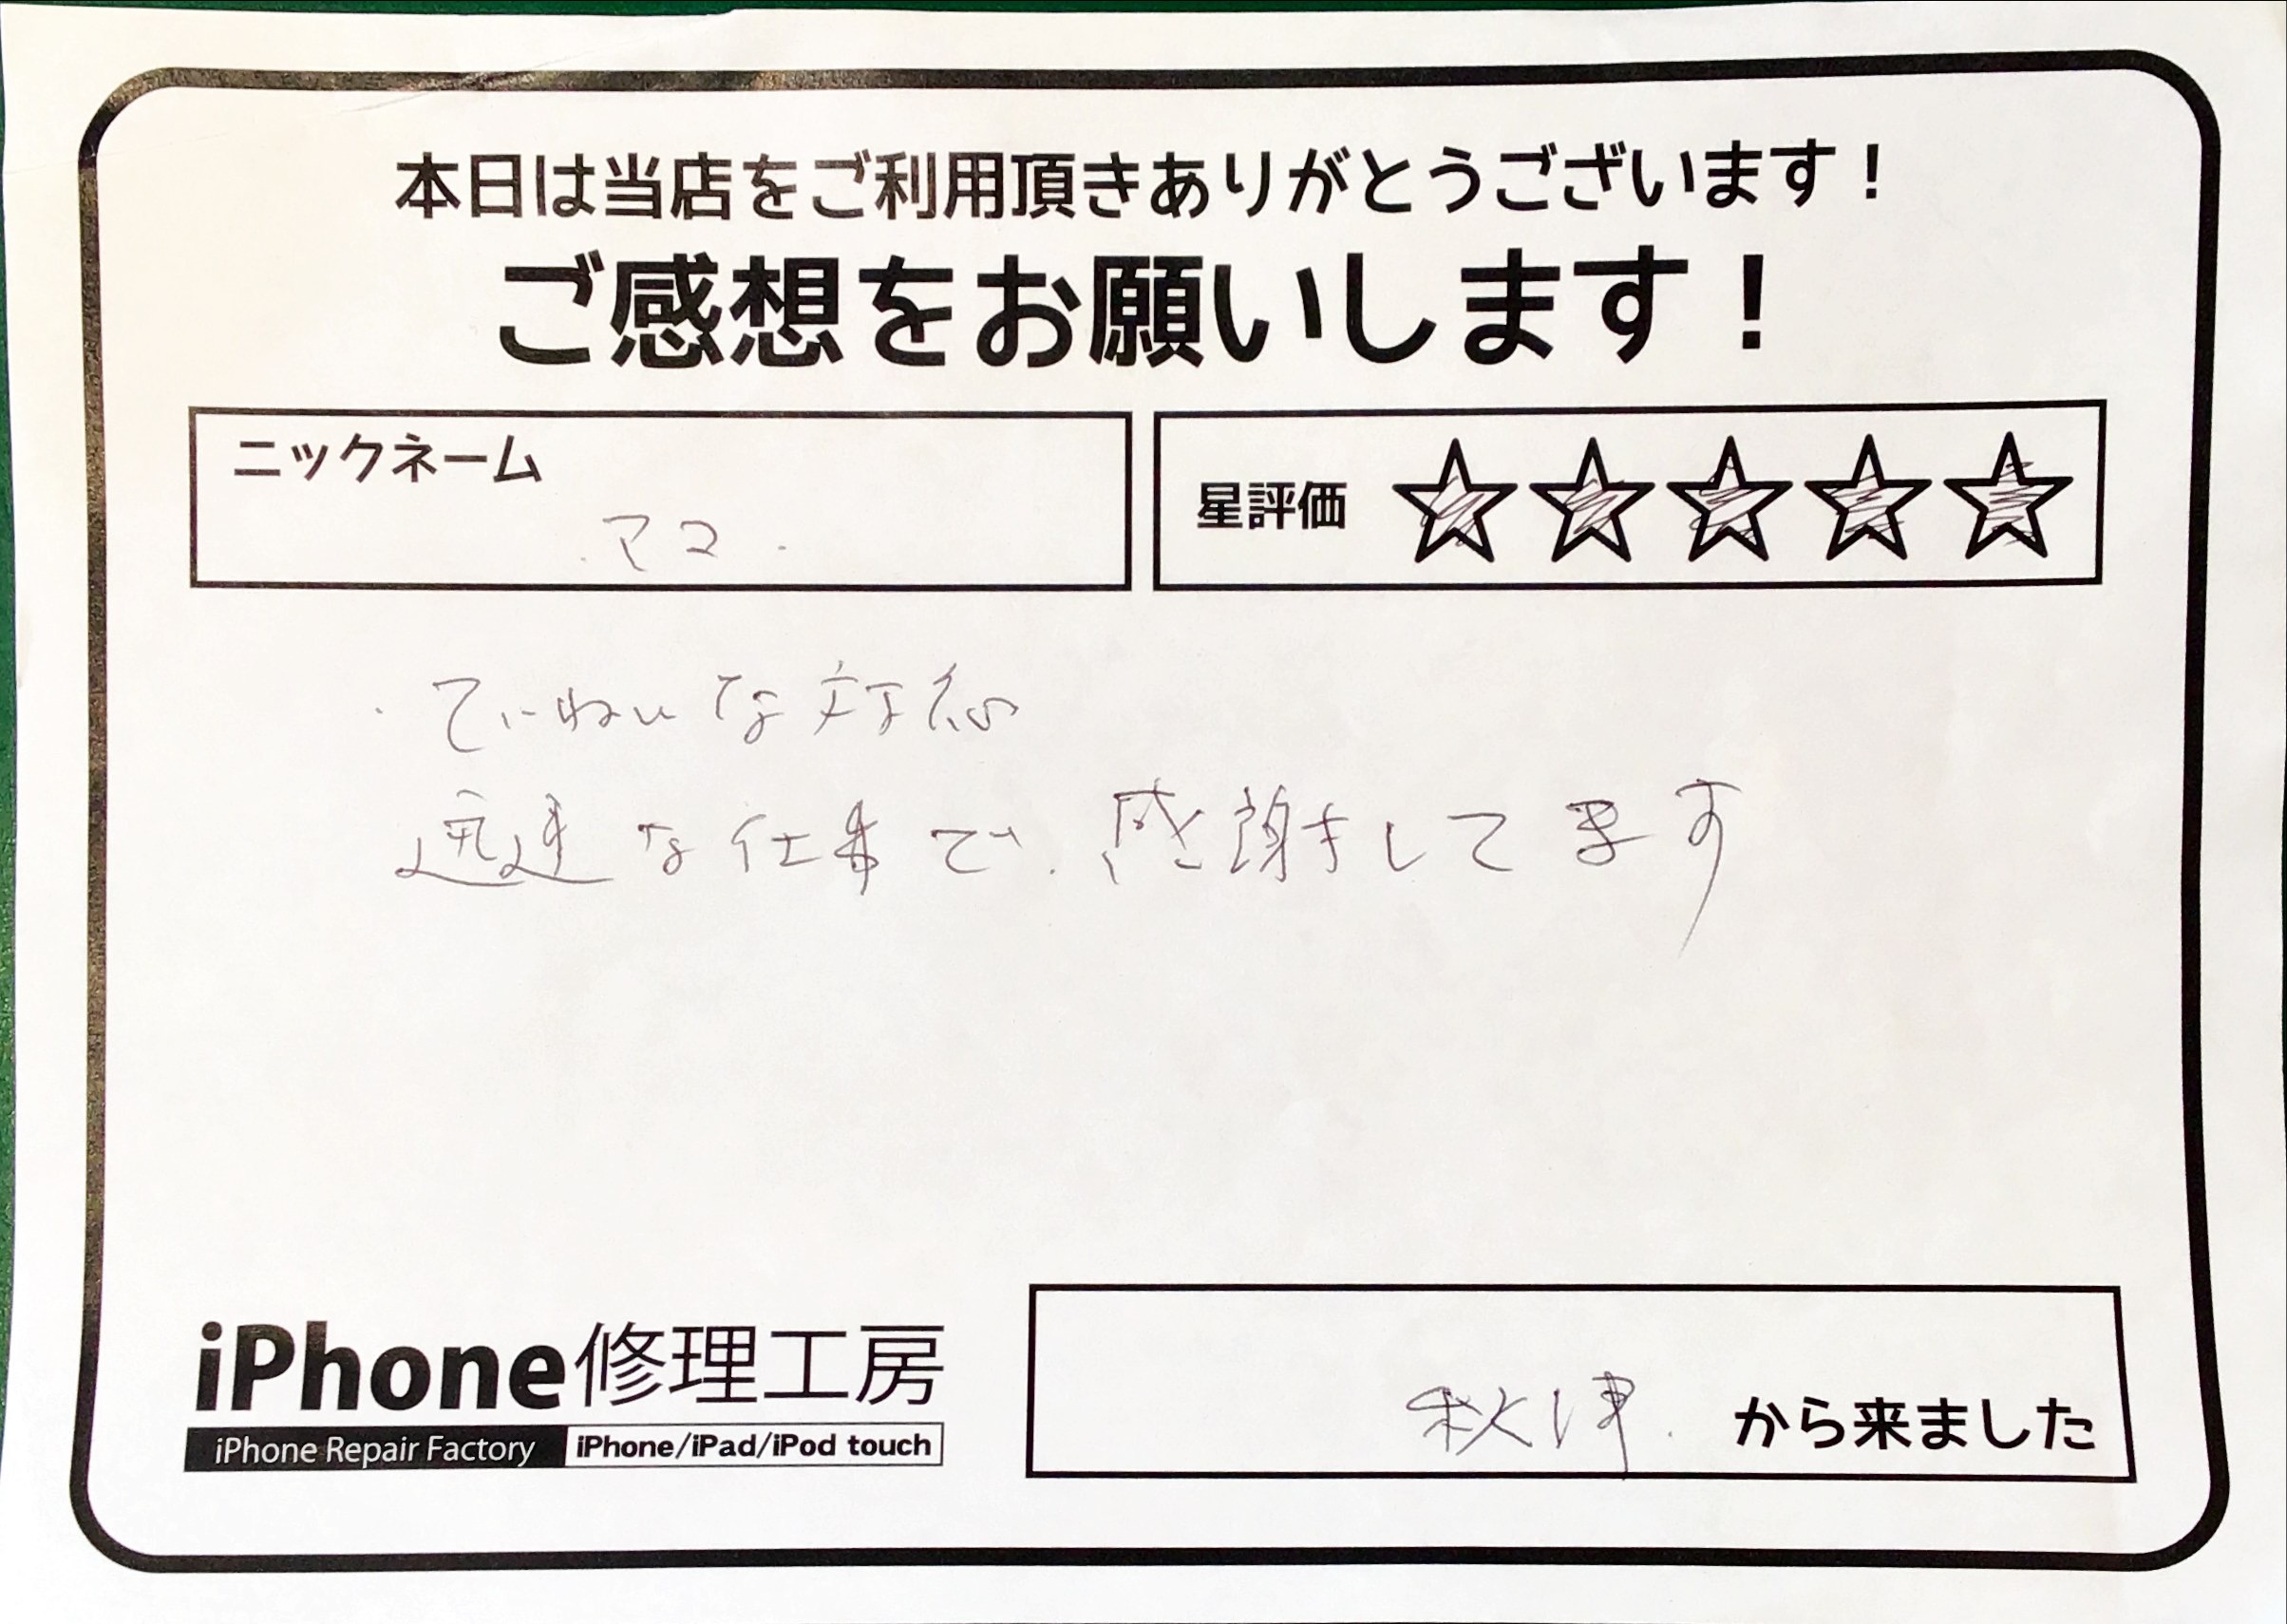 本日は当店をご利用頂きありがとうございます！
ご感想をお願いします！
ニックネーム
マコ
星評価 ☆☆☆☆☆
・ていねいな対応
迅速な仕事で、感謝してます
iPhone修理工房
iPhone Repair Factory iPhone/iPad/iPod touch
秋津 から来ました